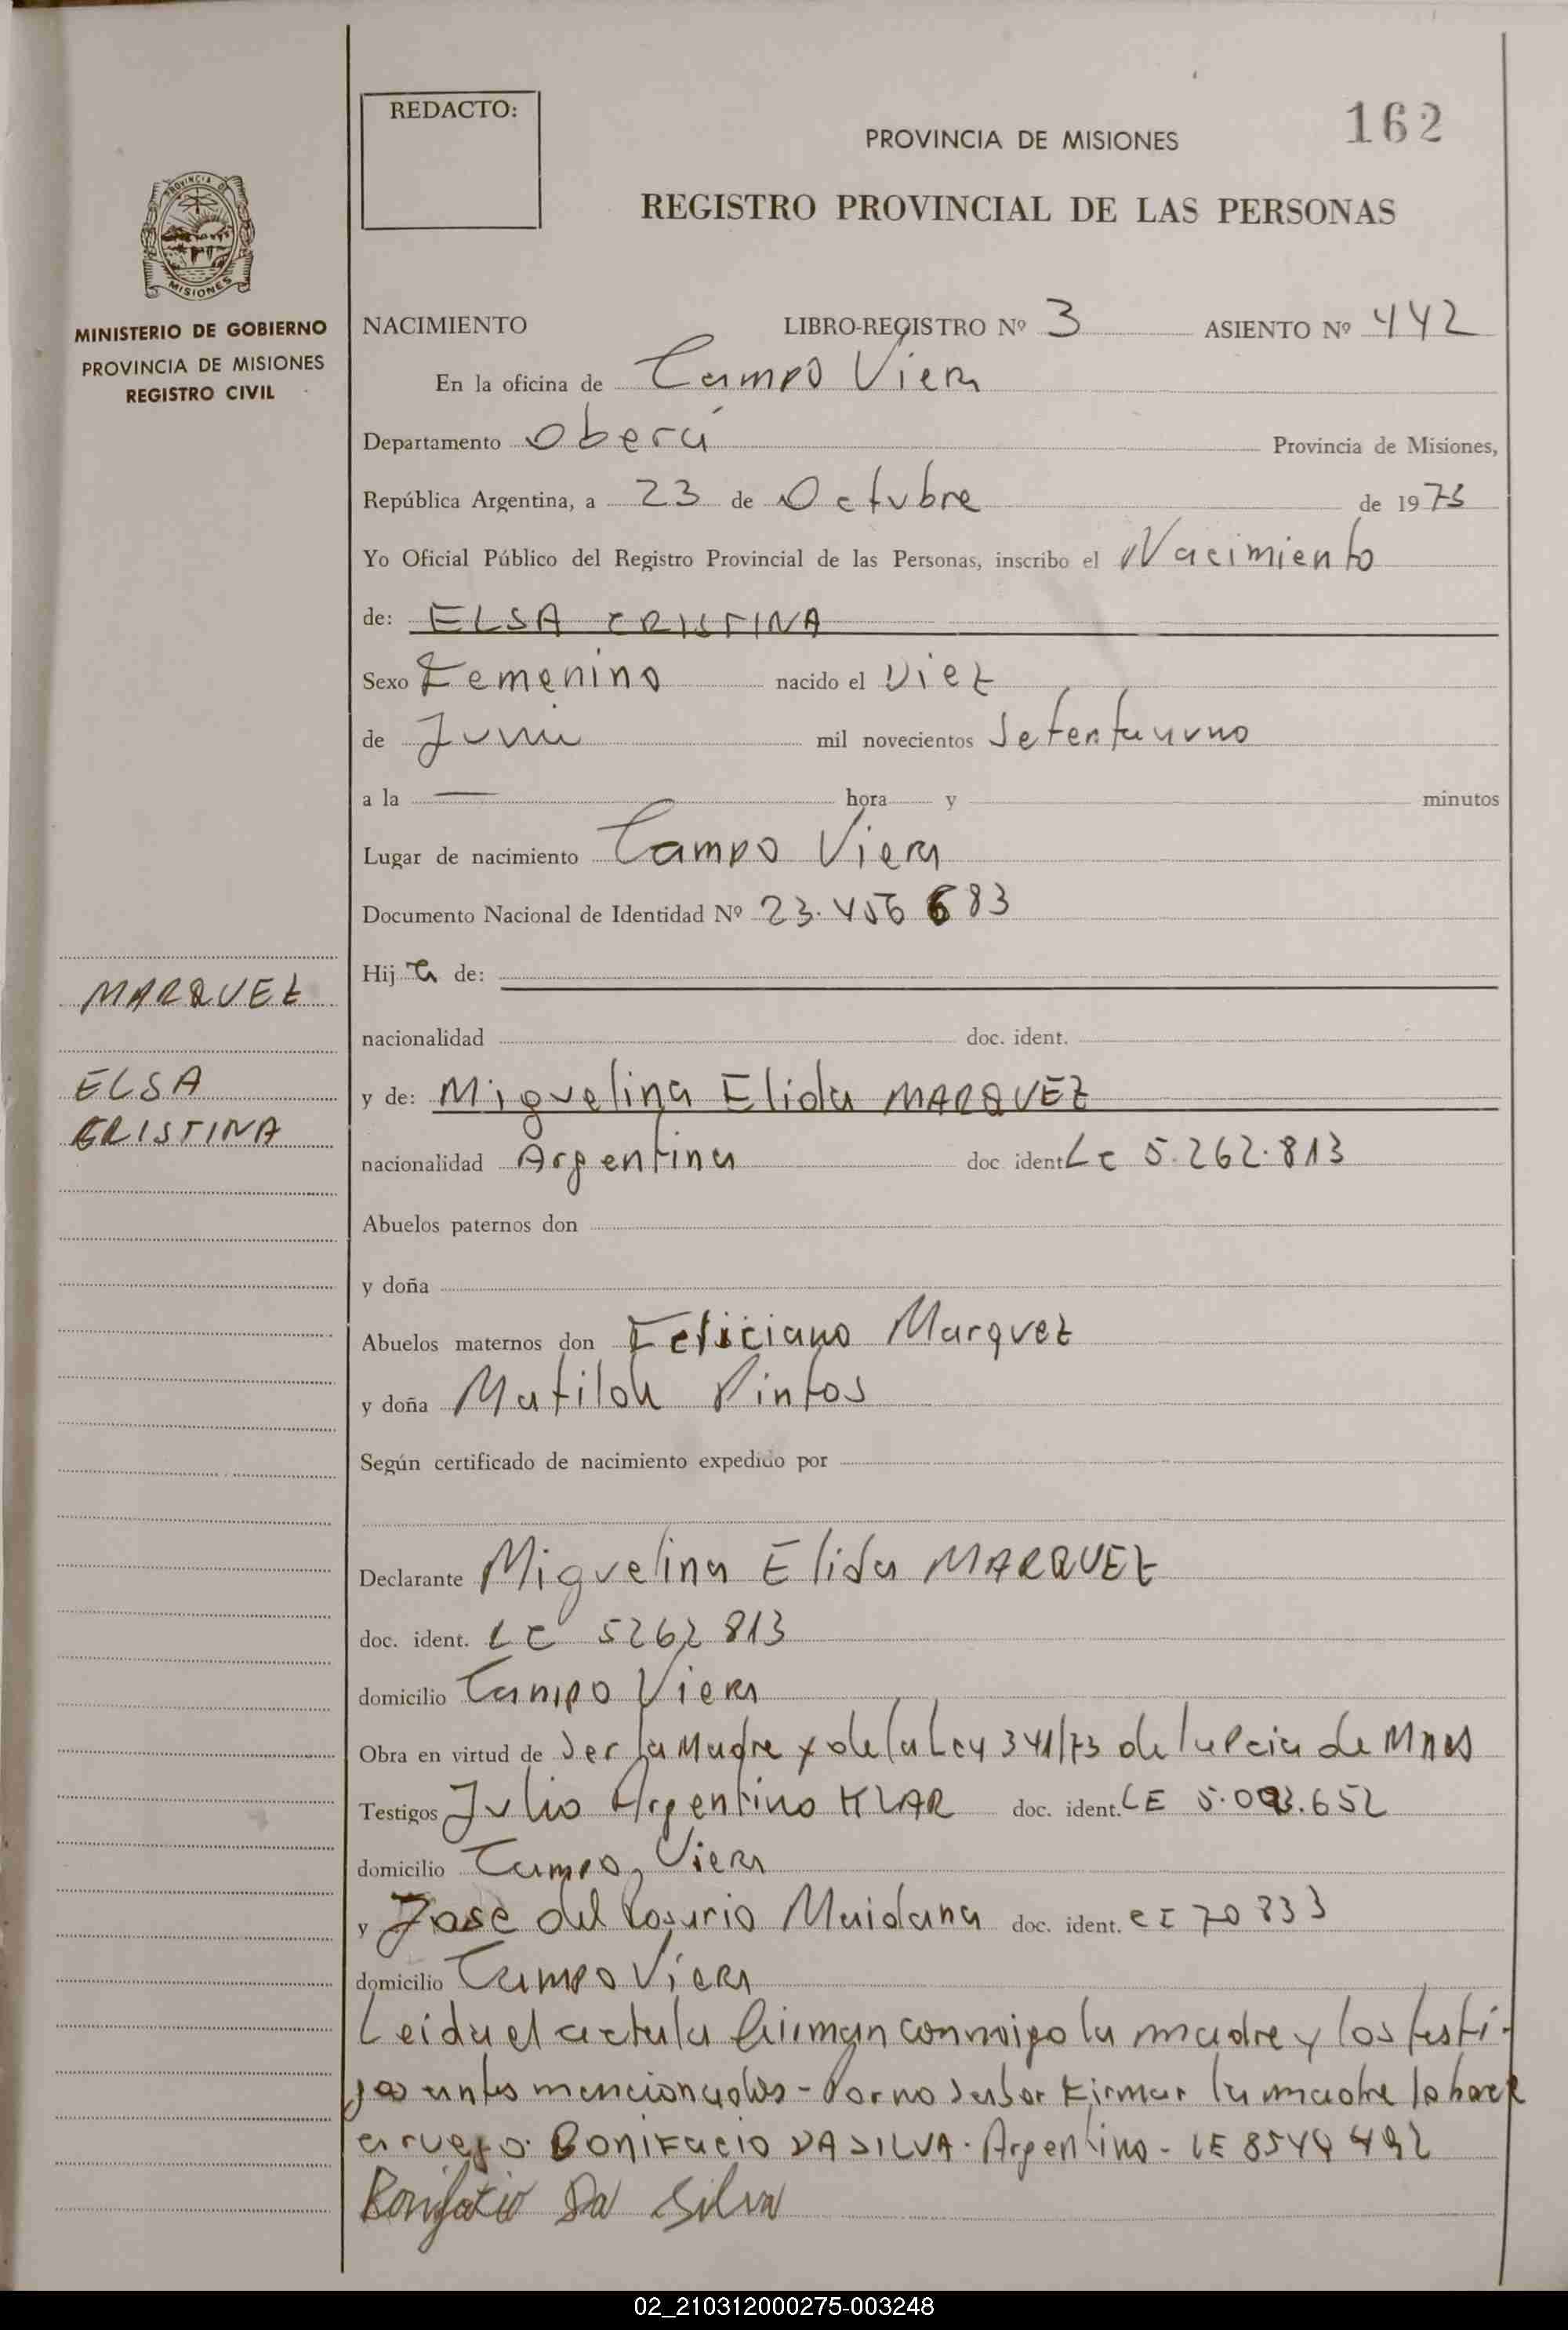 REDACTO:
162
PROVINCIA DE MISIONES
REGISTRO PROVINCIAL DE LAS PERSONAS
PROVINCIA DE
MISIONES
MINISTERIO DE GOBIERNO
PROVINCIA DE MISIONES
REGISTRO CIVIL
NACIMIENTO LIBRO-REGISTRO Nº 3 ASIENTO Nº 442
En la oficina de Campo Viera
Departamento Oberá Provincia de Misiones,
República Argentina, a 23 de Octubre de 1973
Yo Oficial Público del Registro Provincial de las Personas, inscribo el Nacimiento
de: ELSA CRISTINA
Sexo Femenino nacido el Diez
de Junio mil novecientos Setentauno
a la — hora y minutos
Lugar de nacimiento Campo Viera
Documento Nacional de Identidad Nº 23.456 683
Hij a de:
MARQUEZ
nacionalidad doc. ident.
ELSA
y de: Miguelina Elida MARQUEZ
CRISTINA
nacionalidad Argentina doc ident LC 5.262.813
Abuelos paternos don
y doña
Abuelos maternos don Feliciano Marquez
y doña Matilde Pintos
Según certificado de nacimiento expedido por
Declarante Miguelina Elida MARQUEZ
doc. ident. LC 5262813
domicilio Campo Viera
Obra en virtud de Ser la Madre y de la Ley 341/73 de la Pcia de Mnes
Testigos Julio Argentino KLAR doc. ident. LE 5.093.652
domicilio Campo Viera
y Jose del Rosario Maidana doc. ident. CI 70833
domicilio Campo Viera
Leida el acta la firman conmigo la madre y los testi-
gos antes mencionados - Por no saber firmar la madre lo hace
a ruego. Bonifacio DA SILVA. Argentino - LE 8544492
Bonifacio Da Silva
02_210312000275-003248